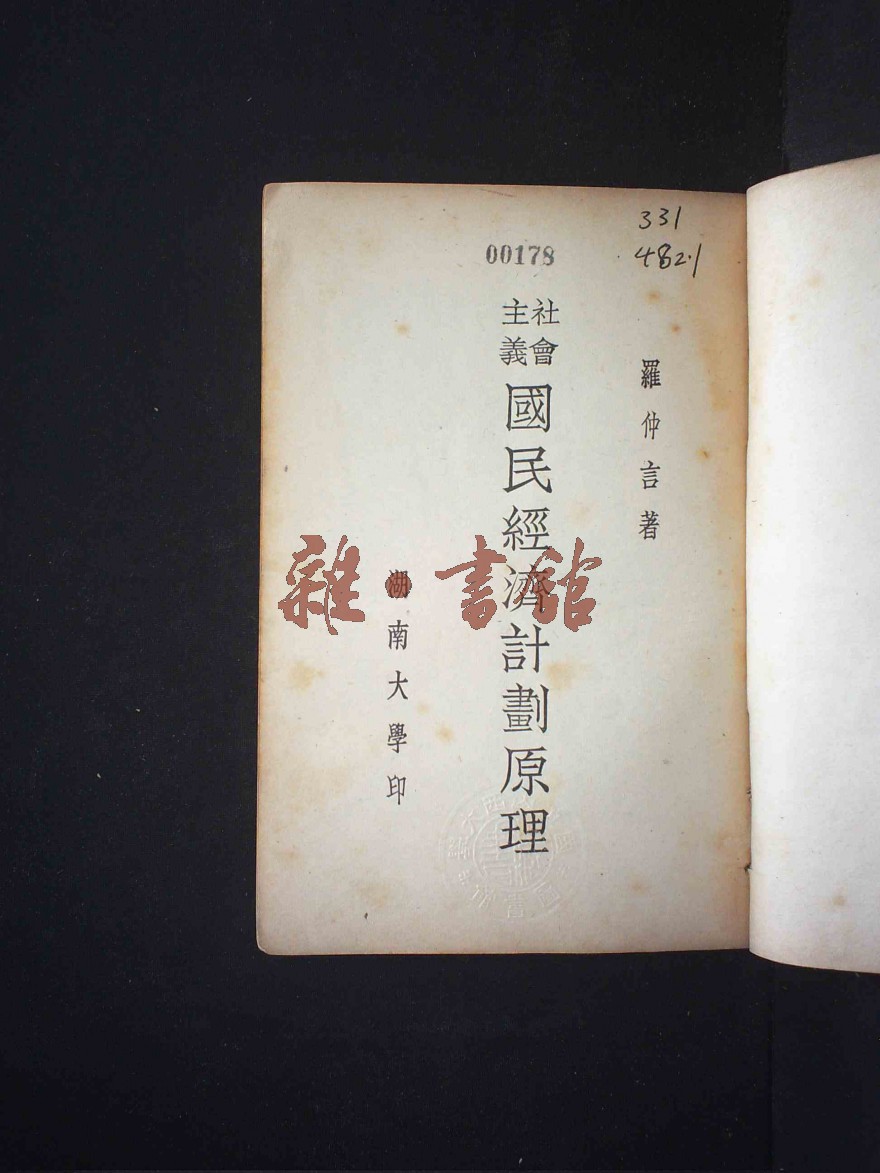 331
482.1
00178
羅仲言著
社會主義
國民經濟計劃原理
湖南大學印
雜書館